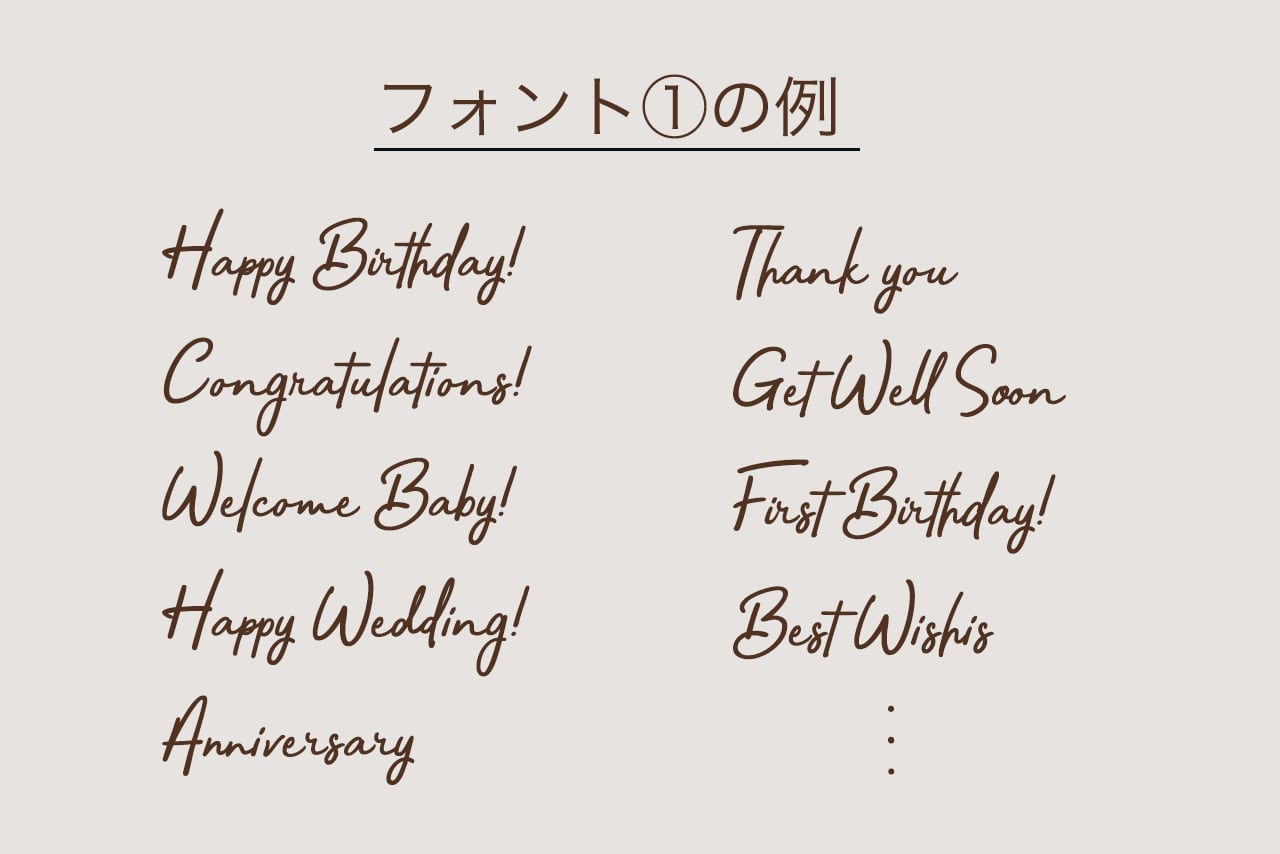 フォント①の例
Happy Birthday!
Congratulations!
Welcome Baby!
Happy Wedding!
Anniversary
Thank you
Get Well Soon
First Birthday!
Best Wishis
:
·